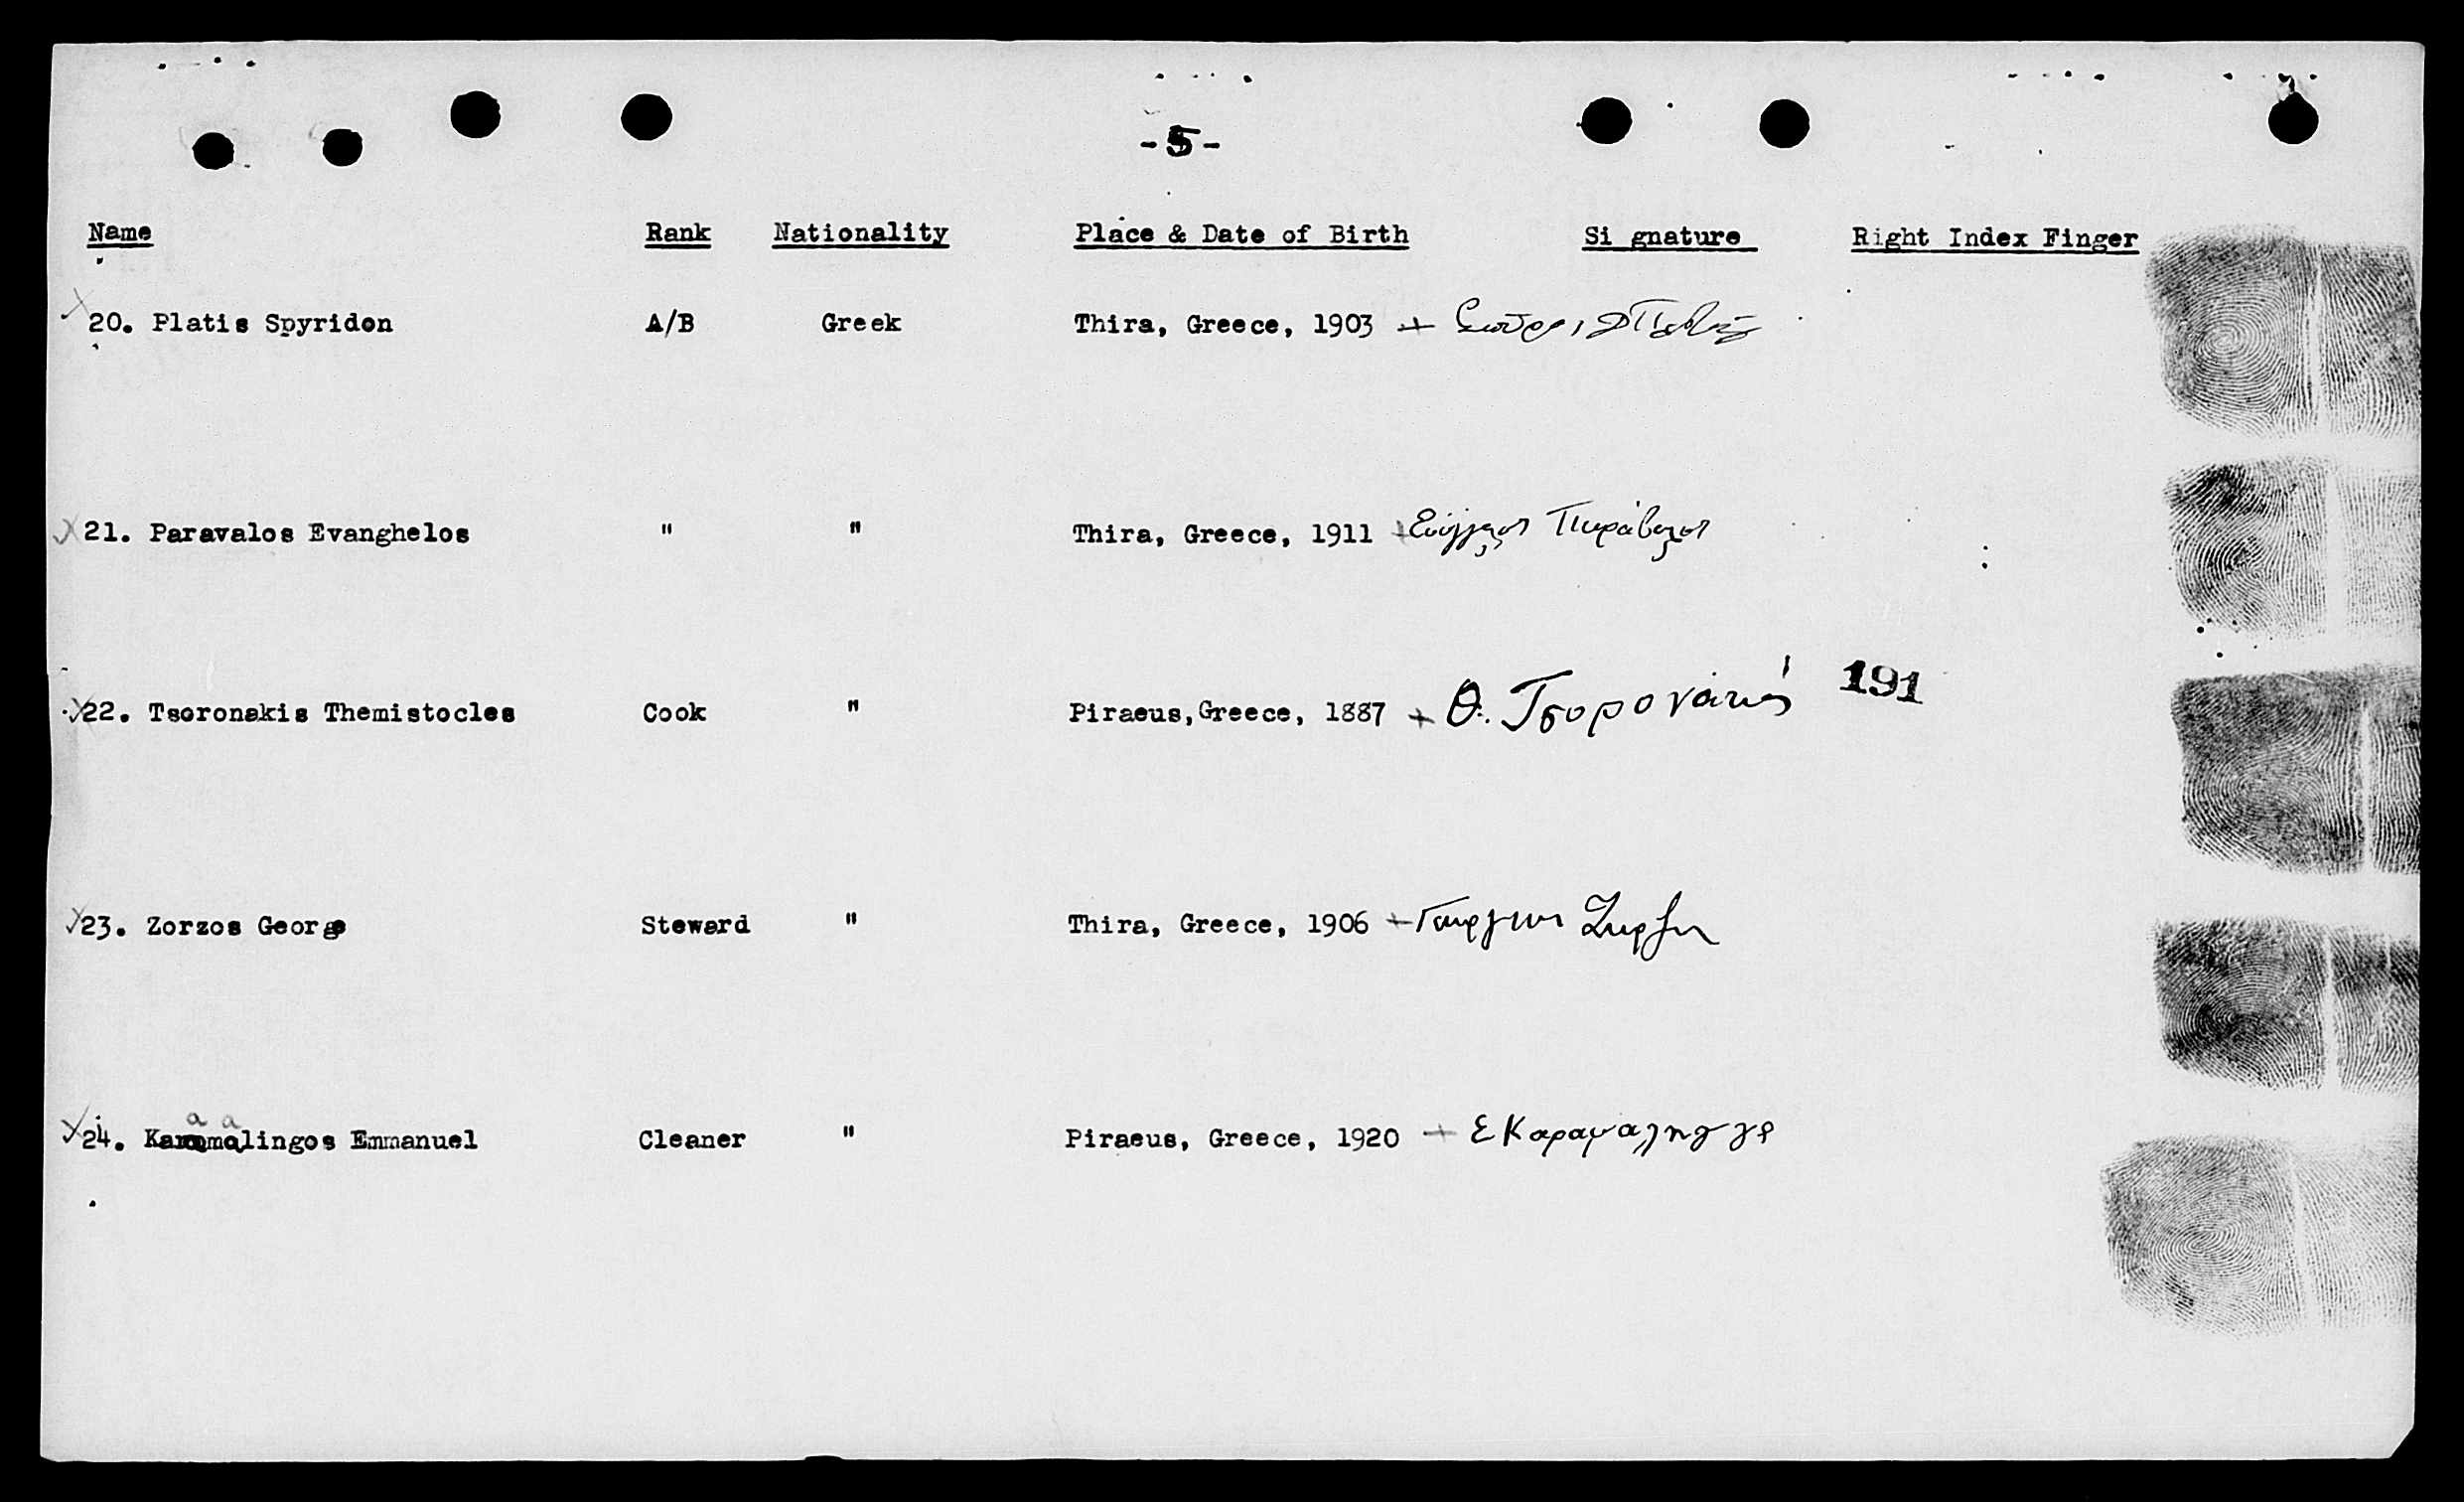 -5-
Name Rank Nationality Place & Date of Birth Si gnature Right Index Finger
20. Platis Spyridon A/B Greek Thira, Greece, 1903 +
21. Paravalos Evanghelos " " Thira, Greece, 1911 + Ευάγγελος Παράβαλος
191
22. Tsoronakis Themistocles Cook " Piraeus, Greece, 1887 + Θ. Τσορονάκις
23. Zorzos George Steward " Thira, Greece, 1906 + Γεώργιος Ζώρζος
a a
24. Karamalingos Emmanuel Cleaner " Piraeus, Greece, 1920 + Ε Καραμαλη